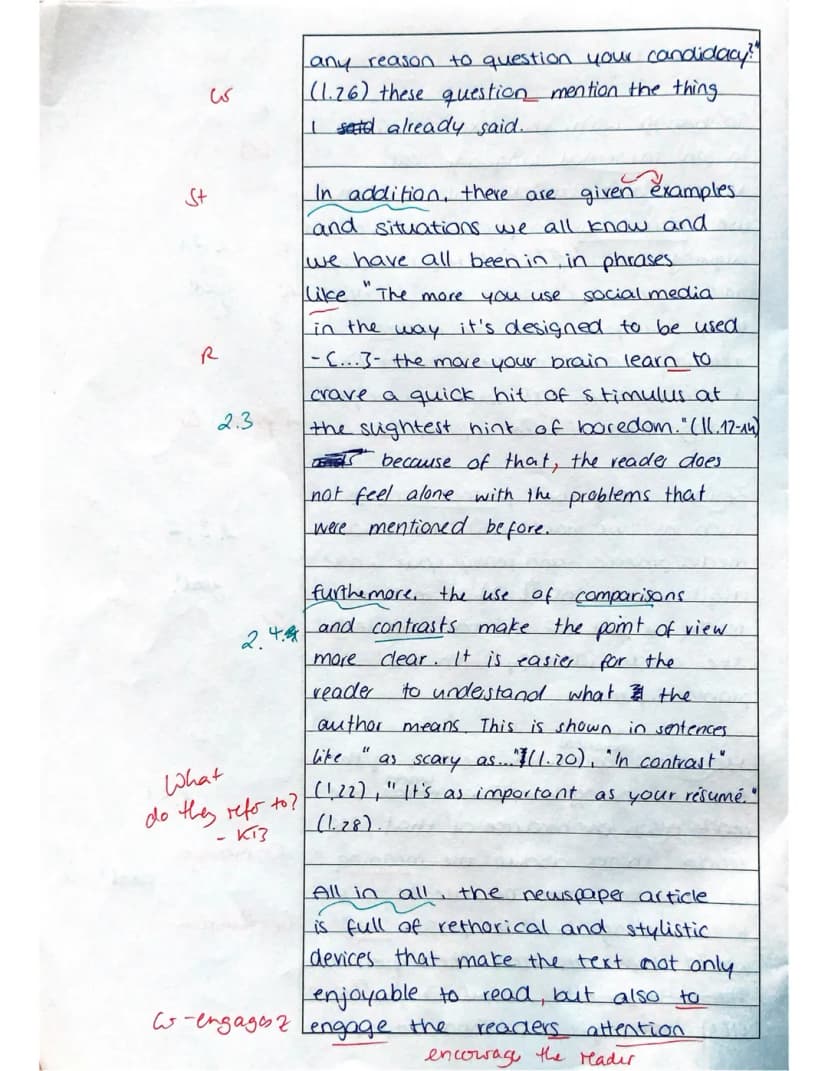 any reason to question your candidacy?"
Gr (l.26) these question mention the thing
I said already said.
St In addition, there are given examples
and situations we all know and
we have all been in, in phrases
like "The more you use social media
in the way it's designed to be used
R -[...]- the more your brain learn to
crave a quick hit of stimulus at
2.3 the slightest hint of boredom." (ll.12-14)
because of that, the reader does
not feel alone with the problems that
were mentioned before.
furthemore, the use of comparisons
2.4. and contrasts make the point of view
more clear. It is easier for the
reader to understand what the
author means. This is shown in sentences
like "as scary as..." (l.20), "In contrast"
What
do they refer to? (l.22), "It's as important as your résumé."
- KB (l.28).
All in all, the newspaper article
is full of rethorical and stylistic
devices that make the text not only
enjoyable to read, but also to
Gr -engages 2 engage the readers attention
encourage the reader